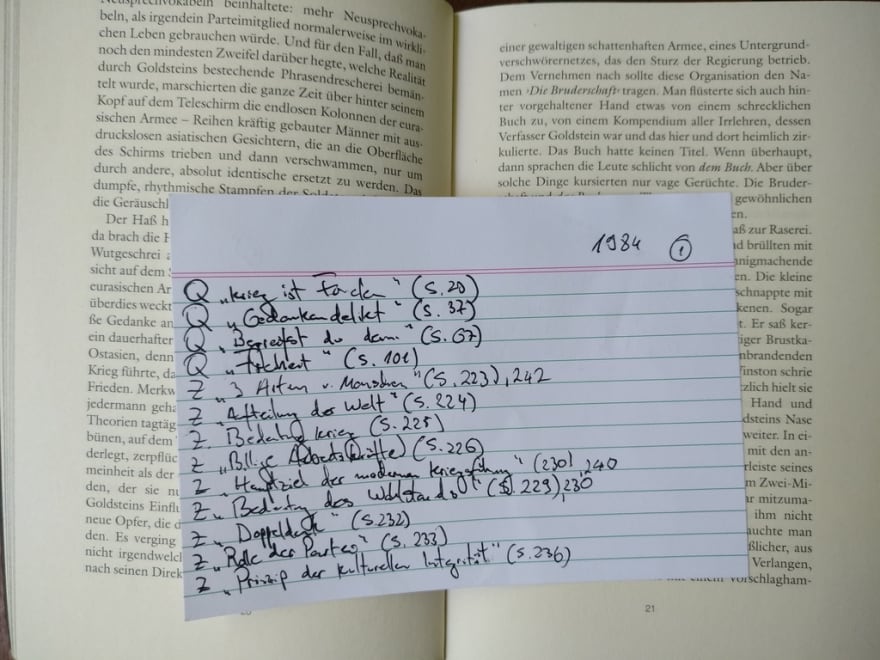 Neusprechvokabeln beinhaltete: mehr Neusprechvoka-
beln, als irgendein Parteimitglied normalerweise im wirkli-
chen Leben gebrauchen würde. Und für den Fall, daß man
noch den mindesten Zweifel darüber hegte, welche Realität
durch Goldsteins bestechende Phrasendrescherei bemän-
telt wurde, marschierten die ganze Zeit über hinter seinem
Kopf auf dem Teleschirm die endlosen Kolonnen der eura-
sischen Armee – Reihen kräftig gebauter Männer mit aus-
druckslosen asiatischen Gesichtern, die an die Oberfläche
des Schirms trieben und dann verschwammen, nur um
durch andere, absolut identische ersetzt zu werden. Das
dumpfe, rhythmische Stampfen der
die Geräuschl
Der Haß h
da brach die
Wutgeschrei
sicht auf dem
eurasischen Ar
überdies weckt
ße Gedanke an
ein dauerhafter
Ostasien, denn
Krieg führte, da
Frieden. Merkw
jedermann geha
Theorien tagtäg
bünen, auf dem
derlegt, zerpflüc
meinheit als der
den, der sie nu
Goldsteins Einflu
neue Opfer, die d
den. Es verging
nicht irgendwelc
nach seinen Direk
einer gewaltigen schattenhaften Armee, eines Untergrund-
verschwörernetzes, das den Sturz der Regierung betrieb.
Dem Vernehmen nach sollte diese Organisation den Na-
men ›Die Bruderschaft‹ tragen. Man flüsterte sich auch hin-
ter vorgehaltener Hand etwas von einem schrecklichen
Buch zu, von einem Kompendium aller Irrlehren, dessen
Verfasser Goldstein war und das hier und dort heimlich zir-
kulierte. Das Buch hatte keinen Titel. Wenn überhaupt,
dann sprachen die Leute schlicht von dem Buch. Aber über
solche Dinge kursierten nur vage Gerüchte. Die Bruder-
gewöhnlichen
en.
aß zur Raserei.
d brüllten mit
nigmachende
en. Die kleine
schnappte mit
kenen. Sogar
t. Er saß ker-
iger Brustka-
nbrandenden
Winston schrie
tzlich hielt sie
Hand und
dsteins Nase
weiter. In ei-
mit den an-
rleiste seines
m Zwei-Mi-
r mitzuma-
ihm nicht
auchte man
ßlicher, aus
Verlangen,
vorschlagham-
21
1984 1
Q „Krieg ist Frieden“ (S. 20)
Q „Gedankendelikt“ (S. 37)
Q „Begreifst du denn“ (S. 67)
Q „Freiheit“ (S. 101)
Z „3 Arten v. Menschen“ (S. 223), 242
Z „Aufteilung der Welt“ (S. 224)
Z Bedeutung Krieg (S. 225)
Z „Billige Arbeitskräfte) (S. 226)
Z „Hauptziel der modernen Kriegsführung“ (230), 240
Z „Bedeutung des Wohlstands“ (S. 229), 230
Z „Doppeldenk“ (S. 232)
Z „Rolle der Partei“ (S. 233)
Z „Prinzip der kulturellen Integrität“ (S. 236)